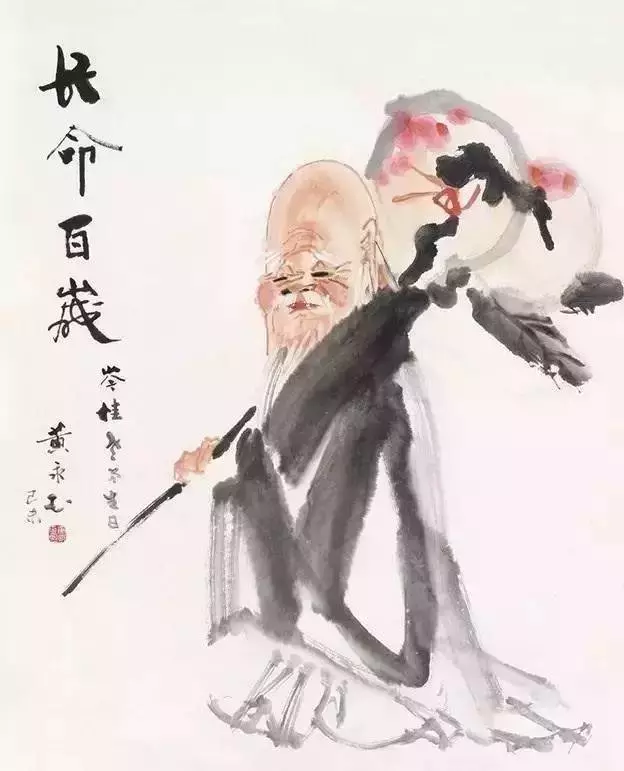 长命百歲
岑桂老生日
黄永玉
己未